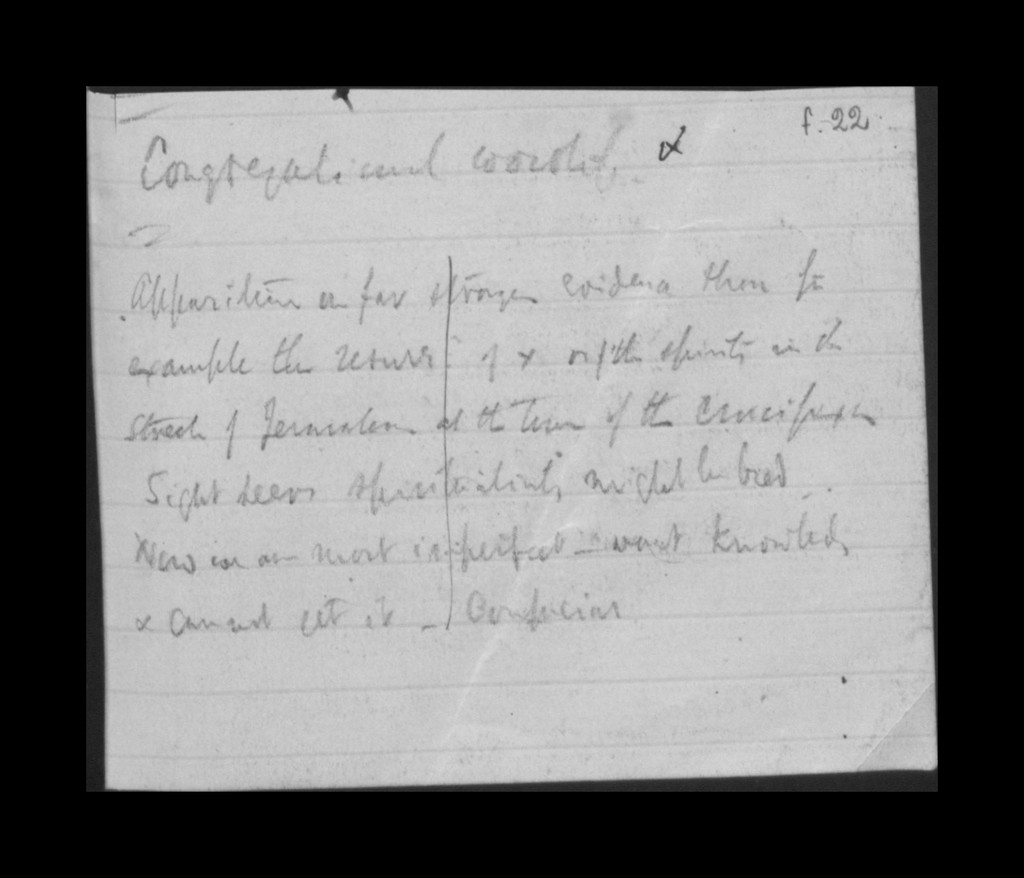 f. 22
Congregational worship &
Apparition are far stronger evidence than for
example the resurr: of x or of the spirits in the
streets of Jerusalem at the time of the crucifixion
Sight seers spiritualists might be
in an most imperfect – want knowledge
& cannot get it – Confucius